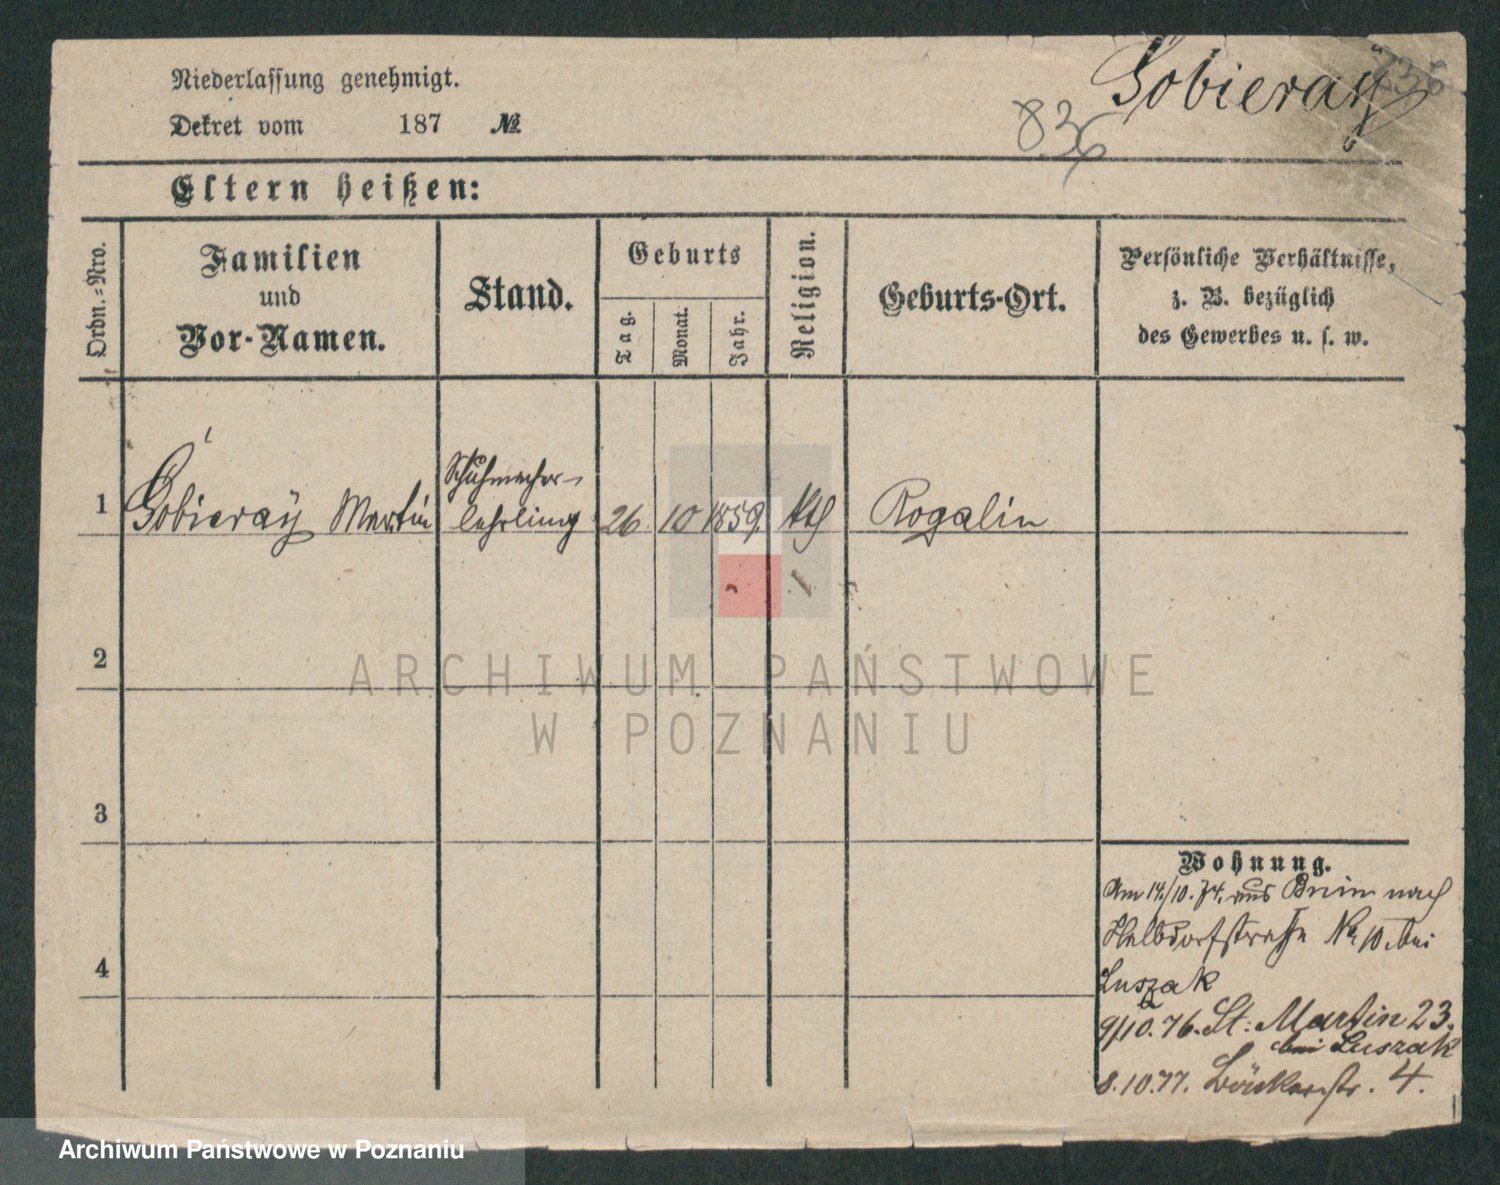 Niederlassung genehmigt.
Dekret vom 187 №
Gobieraÿ
836
Eltern heißen:
Ordn.-Nro.
Familien
und
Vor-Namen.
Stand.
Geburts
Tag.
Monat.
Jahr.
Religion.
Geburts-Ort.
Persönliche Verhältnisse,
z. B. bezüglich
des Gewerbes u. s. w.
1 Gobieraÿ Martin Schuhmacher-
lehrling 26 10 1859. kth Rogalin
2
3
4
Wohnung.
Am 14./10. 74. aus Bnin nach
Halbdorfstraße No 10. bei
Luszak
9/10. 76. St: Martin 23.
bei Luszak
8.10.77. Bäckerstr. 4.
ARCHIWUM PAŃSTWOWE
W POZNANIU
Archiwum Państwowe w Poznaniu